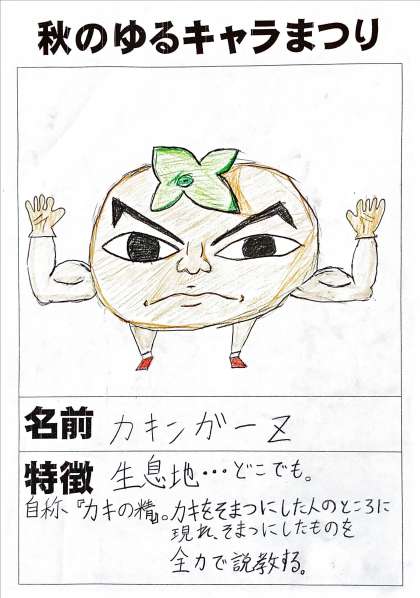 秋のゆるキャラまつり
名前 カキンガーZ
特徴 生息地…どこでも。
自称、『カキの精』。カキをそまつにした人のところに
現れ、そまつにしたものを
全力で説教する。